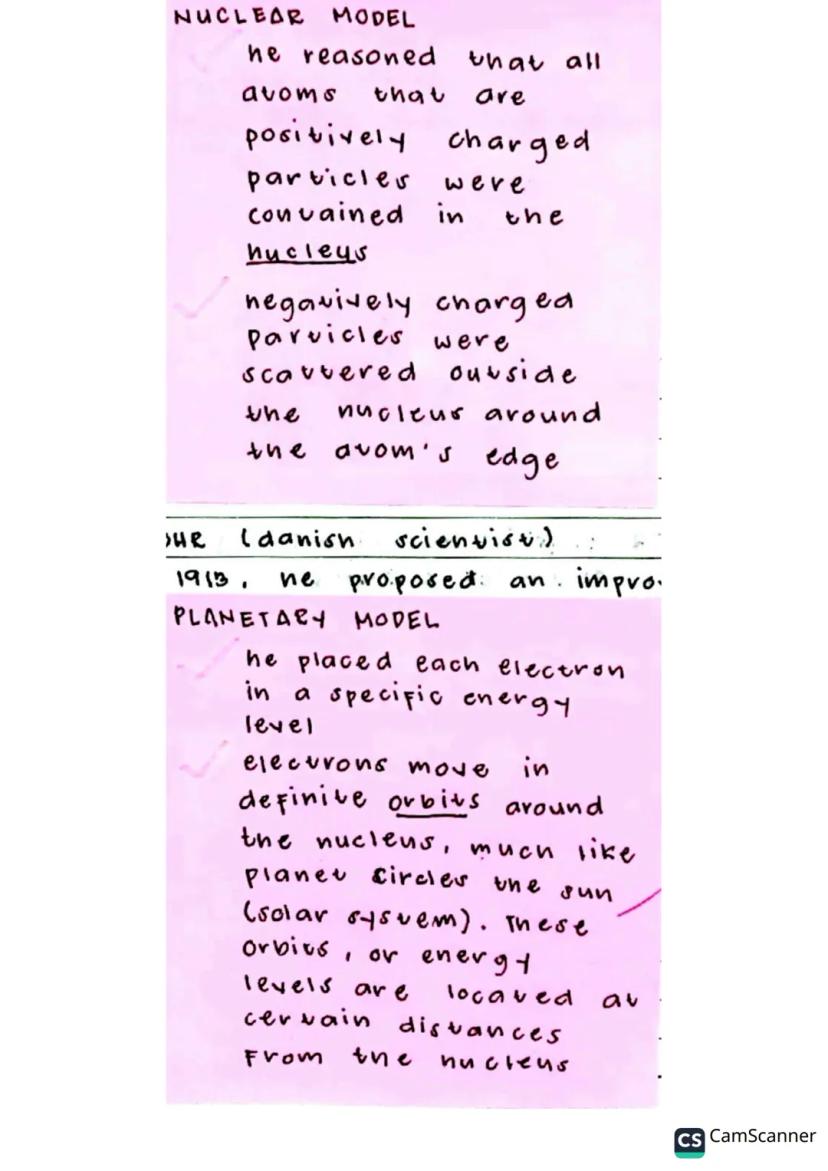 NUCLEAR MODEL
he reasoned that all
atoms that are
positively charged
particles were
contained in the
nucleus
negatively charged
particles were
scattered outside
the nucleus around
the atom's edge
(danish scientist)
1913, he proposed an impro
PLANETARY MODEL
he placed each electron
in a specific energy
level
electrons move in
definite orbits around
the nucleus, much like
planet circles the sun
(solar system). These
orbits, or energy
levels are located at
certain distances
From the nucleus
CS CamScanner